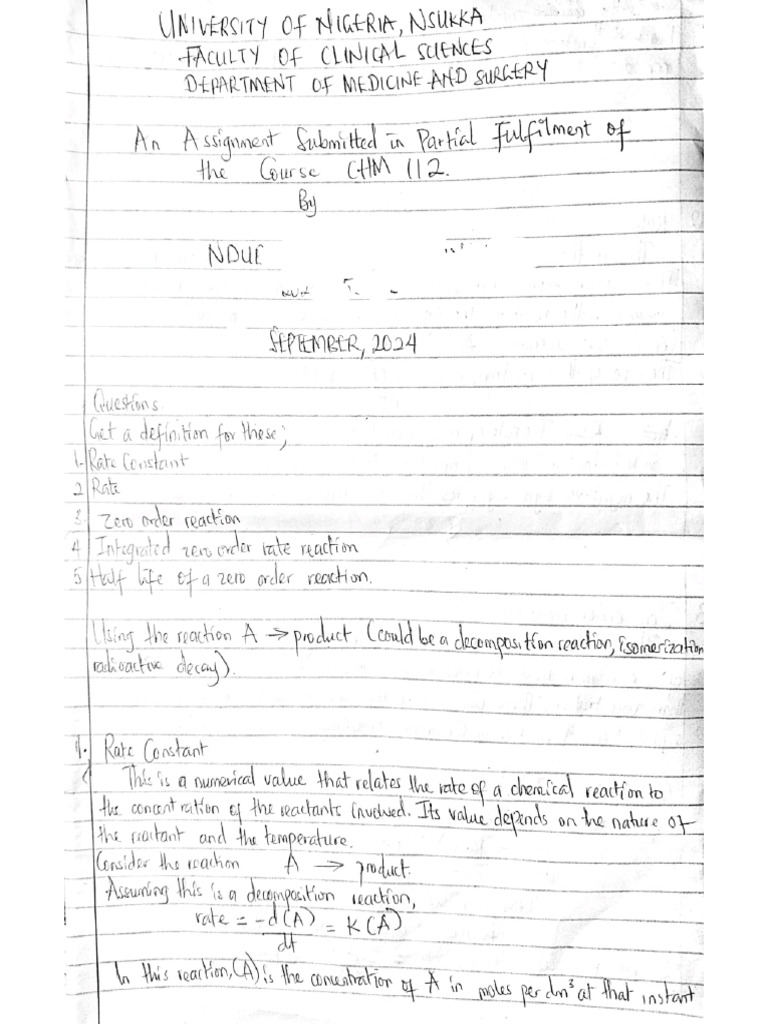 UNIVERSITY OF NIGERIA, NSUKKA
FACULTY OF CLINICAL SCIENCES
DEPARTMENT OF MEDICINE AND SURGERY
An Assignment Submitted in Partial Fulfilment of
the Course CHM 112.
By
SEPTEMBER, 2024
Questions
Get a definition for these;
1. Rate Constant
2 Rate
3. Zero order reaction
4 Integrated zero order rate reaction
5 Half life of a zero order reaction.
Using the reaction A → product (could be a decomposition reaction, isomerization
radioactive decay).
1. Rate Constant
This is a numerical value that relates the rate of a chemical reaction to
the concentration of the reactants involved. Its value depends on the nature of
the reactant and the temperature.
Consider the reaction A → product.
Assuming this is a decomposition reaction,
rate = -d(A) = K(A)
dt
In this reaction, (A) is the concentration of A in moles per dm³ at that instant